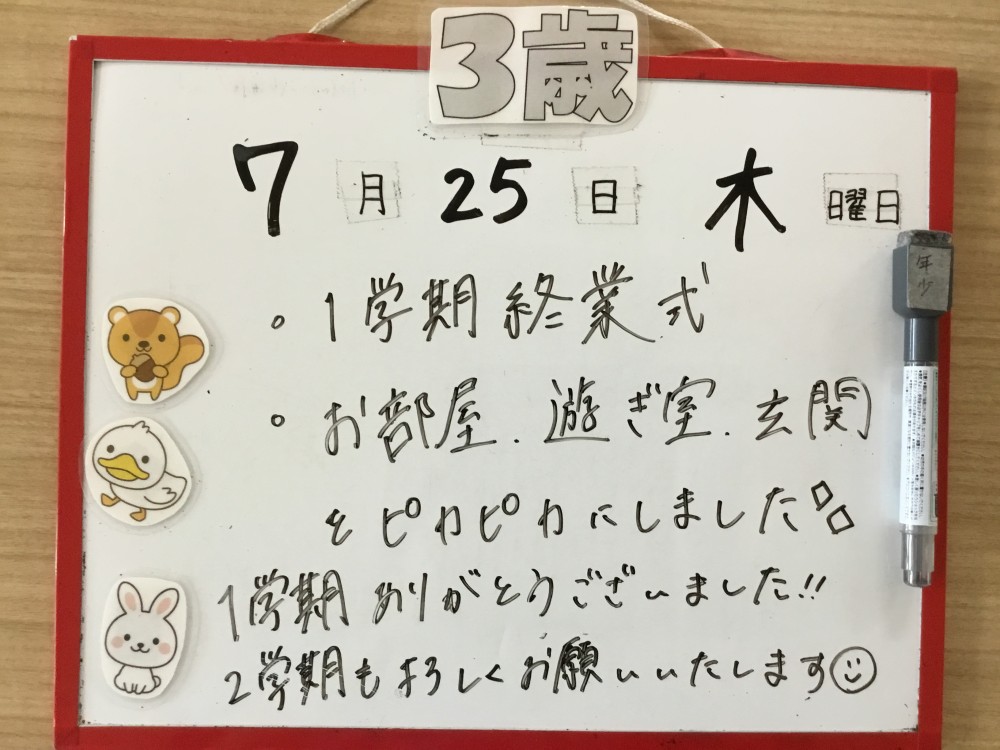 3歳
7月25日 木曜日
年少
。1学期終業式
。お部屋、遊ぎ室、玄関
をピカピカにしました
1学期ありがとうございました!!
2学期もよろしくお願いいたします☺